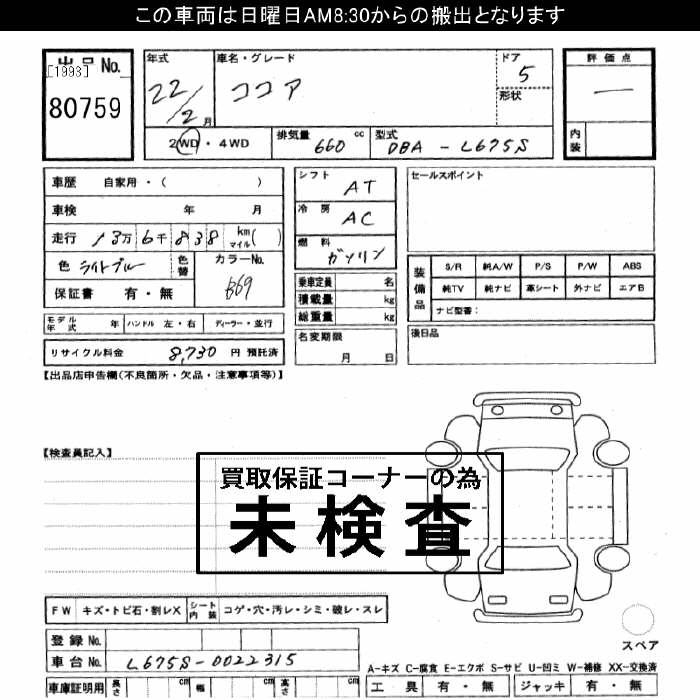 この車両は日曜日AM8:30からの搬出となります
出品No.
[1993]
80759
年式
22/2月
車名・グレード
ココア
ドア
5
形状
評価点
一
内装
2WD・4WD
排気量
660 cc
型式
DBA - L675S
車歴 自家用・( )
車検 年 月
走行 13万6千838 km マイル( )
色 ライトブルー
色替
カラーNo.
B69
保証書 有・無
モデル年式 年
ハンドル 左・右
ディーラー・並行
リサイクル料金 8,730 円 預託済
シフト AT
冷房 AC
燃料 ガソリン
乗車定員 名
積載量 kg
総重量 kg
名変期限
月 日
セールスポイント
装備品
S/R 純A/W P/S P/W ABS
純TV 純ナビ 革シート 外ナビ エアB
ナビ型番:
後日品
【出品店申告欄(不良箇所・欠品・注意事項等)】
【検査員記入】
買取保証コーナーの為
未検査
FW キズ・トビ石・割レX
シート内装 コゲ・穴・汚レ・シミ・破レ・スレ
登録No.
車台No. L675S-0022315
車庫証明用 長さ cm 幅 cm 高さ cm
スペア
A-キズ C-腐食 E-エクボ S-サビ U-凹ミ W-補修 XX-交換済
工具 有・無 ジャッキ 有・無